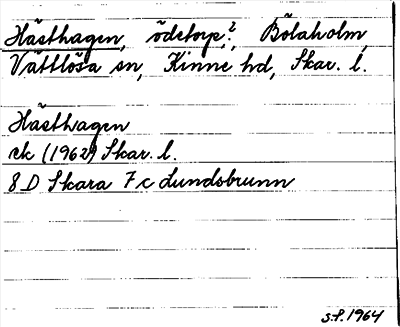 Hästhagen, ödetorp?, Bölaholm,
Vättlösa sn, Kinne hd, Skar. l.
Hästhagen
ek (1962) Skar. l.
8 D Skara 7 c Lundsbrunn
S.F. 1964